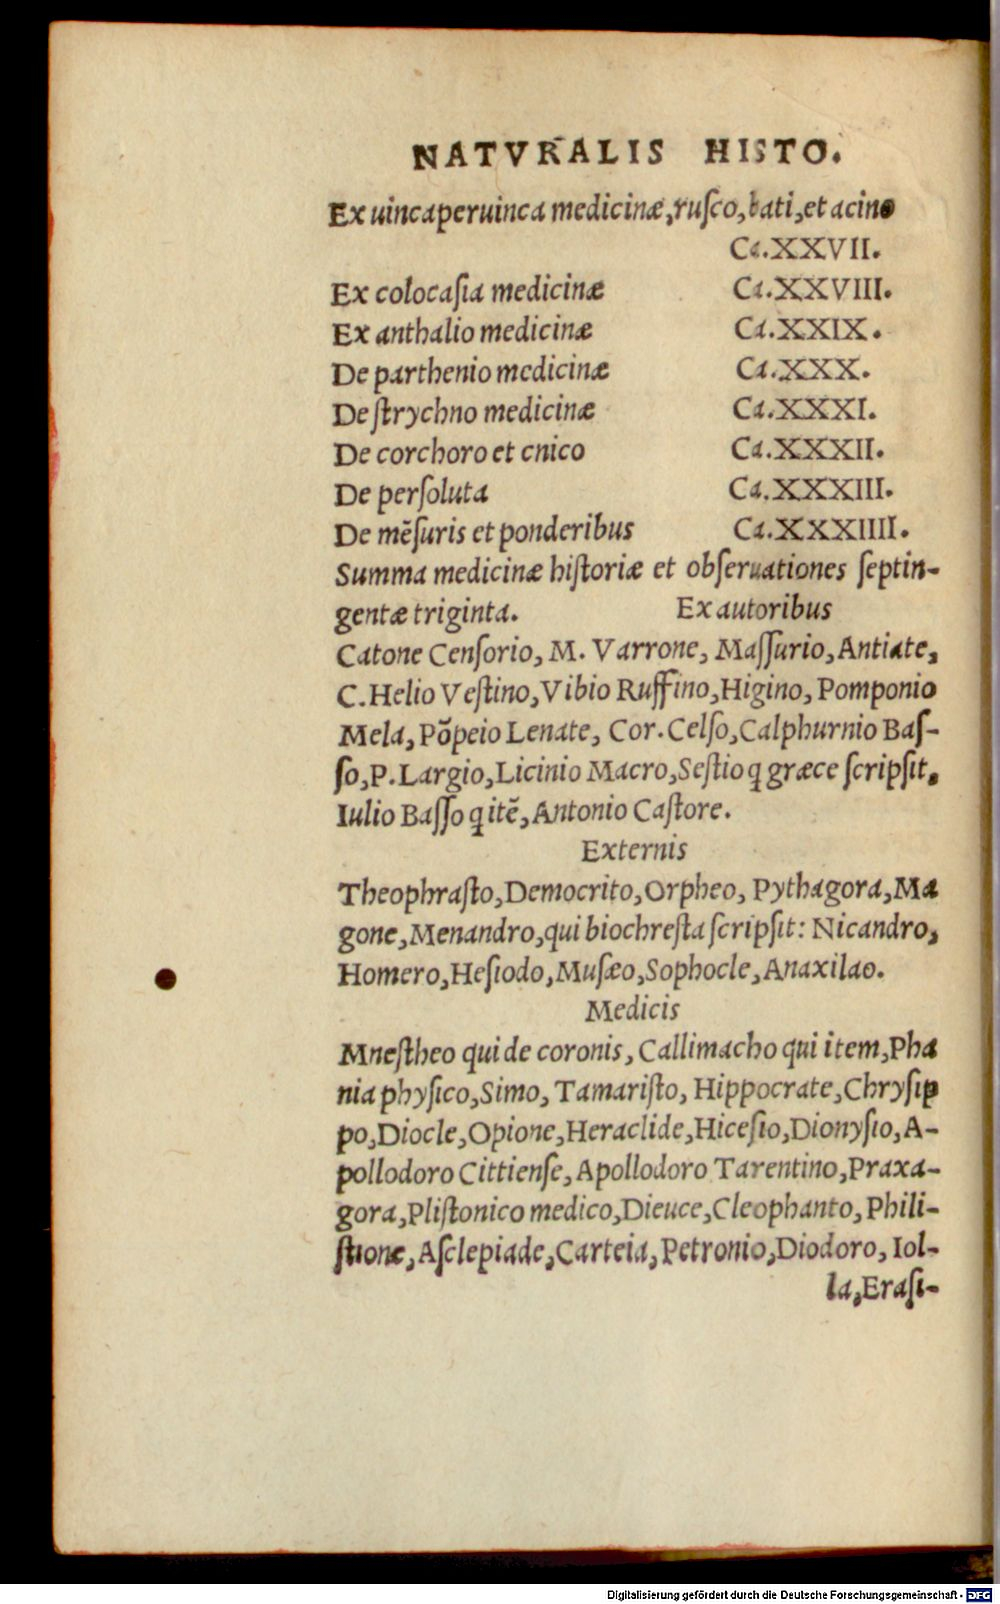 NATVRALIS HISTO.
Ex uincaperuinca medicinæ,ruſco,bati,et acino
Ca.XXVII.
Ex colocaſia medicinæ Ca.XXVIII.
Ex anthalio medicinæ Ca.XXIX.
De parthenio medicinæ Ca.XXX.
De ſtrychno medicinæ Ca.XXXI.
De corchoro et cnico Ca.XXXII.
De perſoluta Ca.XXXIII.
De mẽſuris et ponderibus Ca.XXXIIII.
Summa medicinæ hiſtoriæ et obſeruationes ſeptin-
gentæ triginta. Ex autoribus
Catone Cenſorio, M. Varrone, Maſſurio, Antiate,
C.Helio Veſtino,Vibio Ruffino,Higino, Pomponio
Mela, Põpeio Lenate, Cor.Celſo,Calphurnio Baſ-
ſo,P.Largio,Licinio Macro,Seſtio ꝗ græce ſcripſit,
Iulio Baſſo ꝗ itẽ,Antonio Caſtore.
Externis
Theophraſto,Democrito,Orpheo, Pythagora,Ma
gone,Menandro,qui biochreſta ſcripſit: Nicandro,
Homero,Heſiodo,Muſæo,Sophocle,Anaxilao.
Medicis
Mneſtheo qui de coronis, Callimacho qui item,Pha
nia phyſico,Simo, Tamariſto, Hippocrate,Chryſip
po,Diocle,Opione,Heraclide,Hiceſio,Dionyſio,A-
pollodoro Cittienſe, Apollodoro Tarentino,Praxa-
gora,Pliſtonico medico,Dieuce,Cleophanto, Phili-
ſtione, Aſclepiade,Carteia,Petronio,Diodoro, Iol-
la,Eraſi-
Digitalisierung gefördert durch die Deutsche Forschungsgemeinschaft - DFG